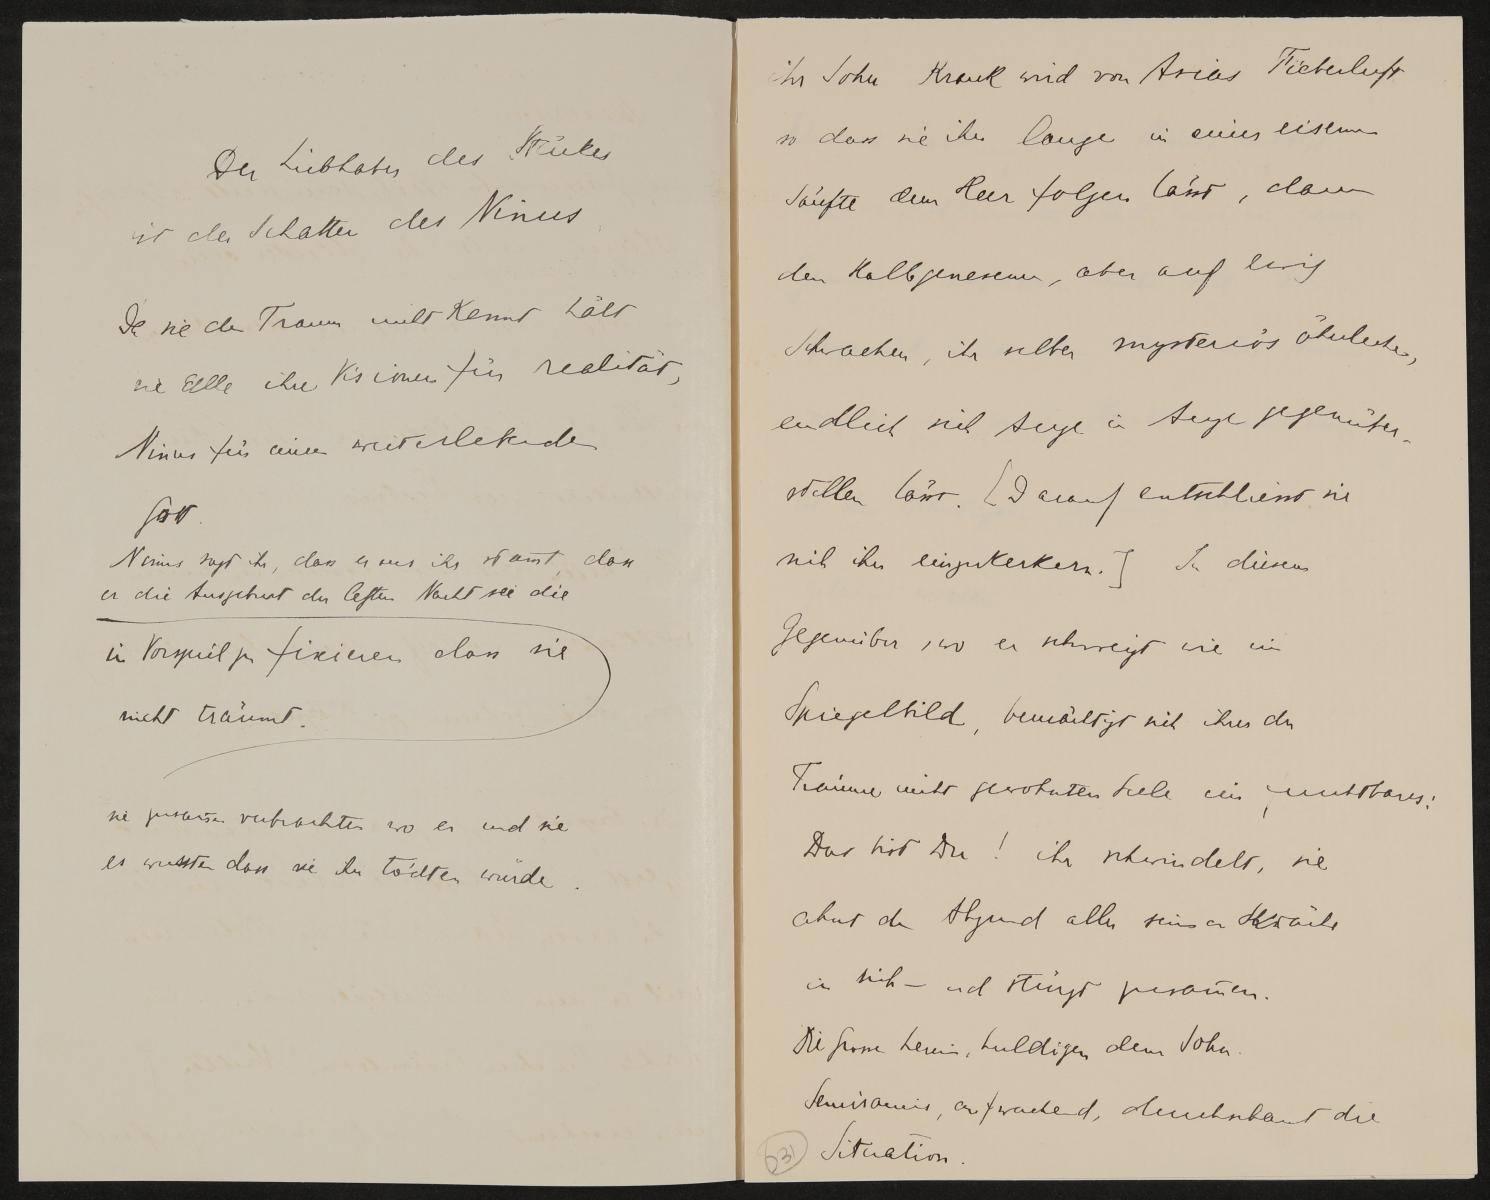 Der Liebhaber des Stückes
ist der Schatten des Ninus
Da sie den Traum nicht kennt hält
sie alle ihre Visionen für realität,
Ninus für einen weiterlebenden
Gott.
Ninus sagt ihr, dass er aus ihr stamt, dass
er die Ausgeburt der letzten Nacht sei die
im Vorspiel zu fixieren dass sie
nicht träumt.
sie zusamen verbrachten wo er und sie
es wussten dass sie ihn tödten würde.
ihr Sohn krank wird von Asias Fieberluft
so dass sie ihn lange in einer eisernen
Sänfte dem Heer folgen lässt, dann
den Halbgenesenen, aber auf ewig
Schwachen, ihr selber mysteriös ähnlichen,
endlich sich Auge in Auge gegenüber-
stellen lässt. [Darauf entschliesst sie
sich ihn einzukerkern.] In diesem
Gegenüber, wo er schweigt wie ein
Spiegelbild, bemächtigt sich ihrer der
Träume nicht gewohnten Seele ein furchtbares:
Das bist Du! ihr schwindelt, sie
ahnt den Abgrund aller seiner
in sich – und stürzt zusamen.
Die Grossen herein, huldigen dem Sohn.
Semiramis, aufwachend, durchschaut die
Situation.